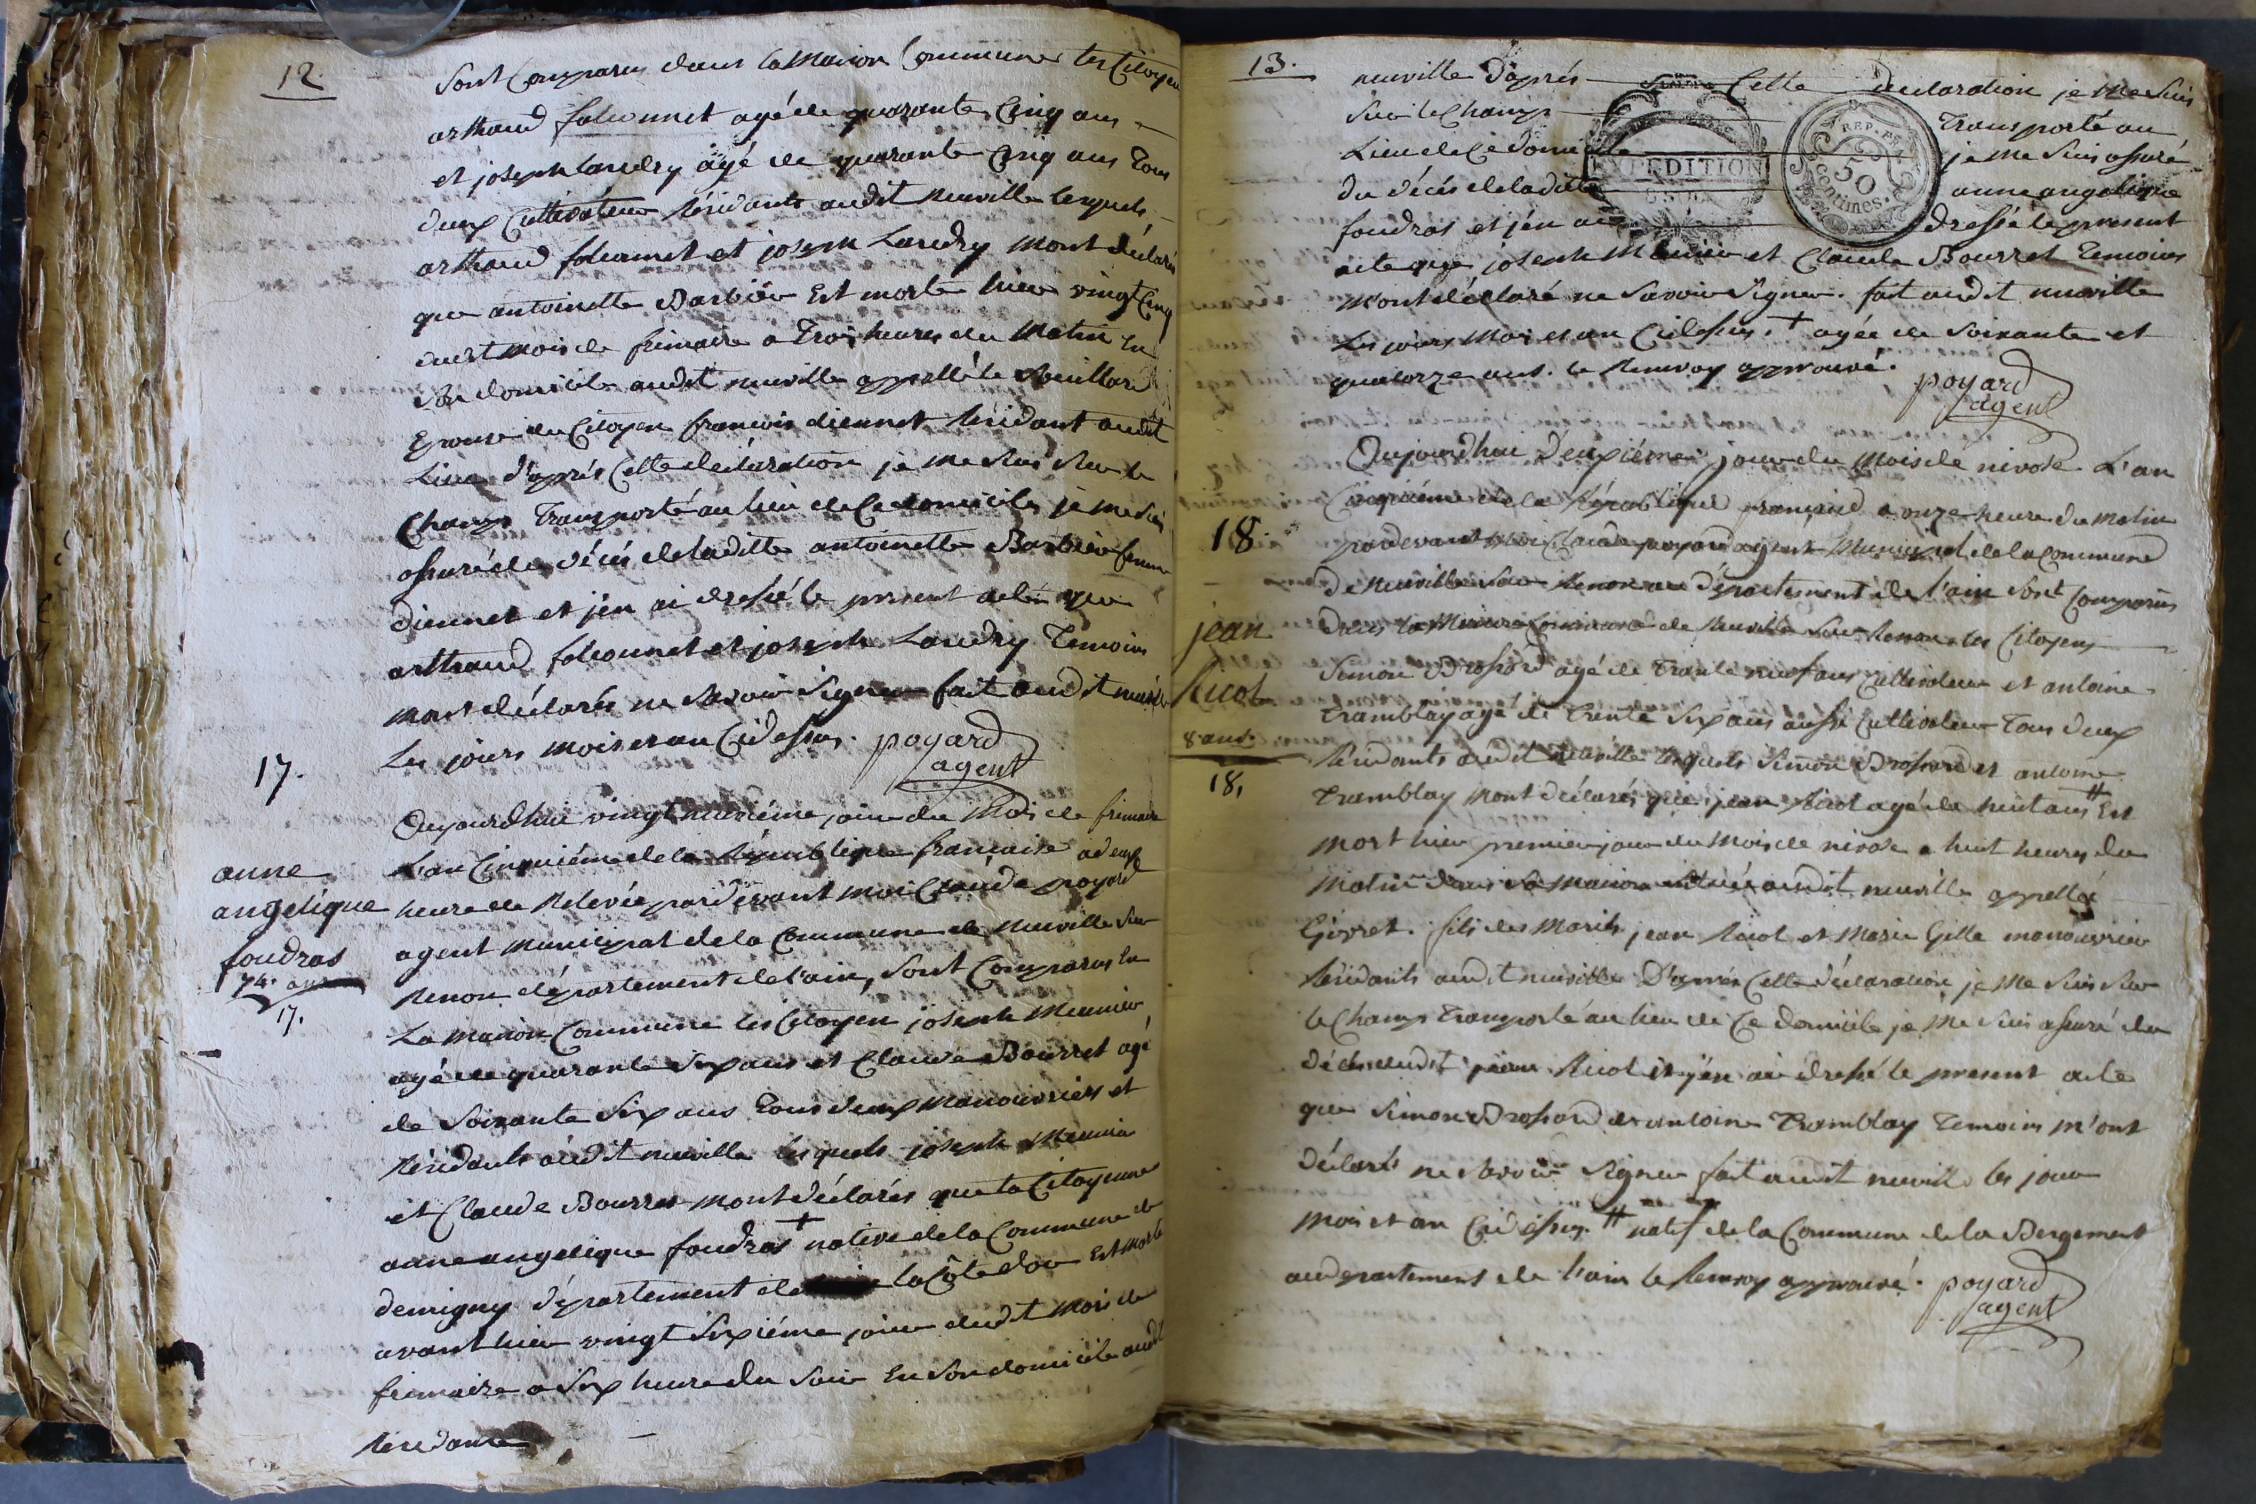 12.
Sont Comparus dans la Maison Commune les Citoyen
arthaud falconnet agé de quarante Cinq ans
et joseph Landry agé de quarante Cinq ans Tous
deux Cultivateur Résidants audit neuville lesquels
arthaud falconnet et joseph Landry Mont déclaré
que antoinette Barbier Est morte hier vingt Cinq
dudt Mois de frimaire a Trois heures du Matin En
Son domicile audit neuville appellé le
Epouse du Citoyen francois diennet Résidant audit
Lieu d'aprés Cette déclaration je me Suis Sur le
Champ Transporté au lieu de Ce domicile, je me Suis
assuré du décés de laditte antoinette Barbier femme
diennet et j'en ai dressé le present acte que
arthaud falconnet et joseph Landry Temoins
Mont déclarés ne Savoir Signer fait audit neuville
Les jours mois et an Cidessus. poyard
agent
17.
anne
angélique
foudras
74. ans
17.
Aujourdhui vingt huitiéme jour du Mois de frimaire
L'an Cinquiéme de la République francaise a deux
heure de Relevée pardevant moi Claude poyard
agent municipal de la Commune de Neuville Sur
Renon département de l'ain, Sont Comparus En
La maison Commune les Citoyen joseph Meunier
agé de quarante Six ans et Claude Bourret agé
de Soixante Six ans Tous deux manouvriers et
Résidants audit neuville lesquels joseph Meunier
et Claude Bourret mont déclarés que la Citoyenne
anne angelique foudras + native de la Commune de
demigny département de la Côte dor Est morte
avant hier vingt Sixiéme jour dudit mois de
frimaire a Six heure du Soir En Son domicile audit
Residante
13.
neuville d'aprés Cette declaration je me Suis
Sur le Champ Transporté au
Lieu de Ce domicile je me Suis assuré
du décés de laditte anne angelique
foudras et j'en ai dressé le present
EXPEDITION
REP. FRA.
50
centimes.
acte que joseph Meunier et Claude Bourret Temoins
M'ont déclaré ne Savoir Signer. fait audit neuville
Les jours Mois et an Cidessus. + agée de Soixante et
quatorze ans. le Renvoy approuvé.
poyard
agent
18.
jean
Ricol
8 ans.
18.
Aujourdhui deuxiéme jour du Mois de nivose L'an
Cinquiéme de la République française a onze heure du matin
pardevant moi Claude poyard agent Municipal de la Commune
de Neuville Sur Renon au département de l'ain Sont Comparus
dans la Maison Commune de Neuville Sur Renon les Citoyens
Simon Brossard agé de Trante neuf ans Cultivateur et antoine
Tramblay agé de Trente Six ans aussi Cultivateur Tous deux
Résidants audit neuville lesquels Simon Brossard et antoine
Tramblay Mont déclarés que jean Ricol agé de huit ans # Est
Mort hier premier jour du Mois de nivose a huit heures du
Matin dans Sa maison Située audit neuville appellée
Givret. fils des Mariés jean Ricol et Marie Gille manouvrier
Résidants audit neuville D'aprés Cette déclaration je me Suis Sur
le Champ Transporté au lieu de Ce domicile je Me Suis assuré du
décés dudit jean Ricol et j'en ai dressé le present acte
que Simon Brossard et antoine Tramblay Temoins m'ont
déclarés ne Savoir Signer fait audit neuville les jour
Mois et an Cidessus. # natif de la Commune de la Bergement
au departement de l'ain le Renvoy approuvé. poyard
agent